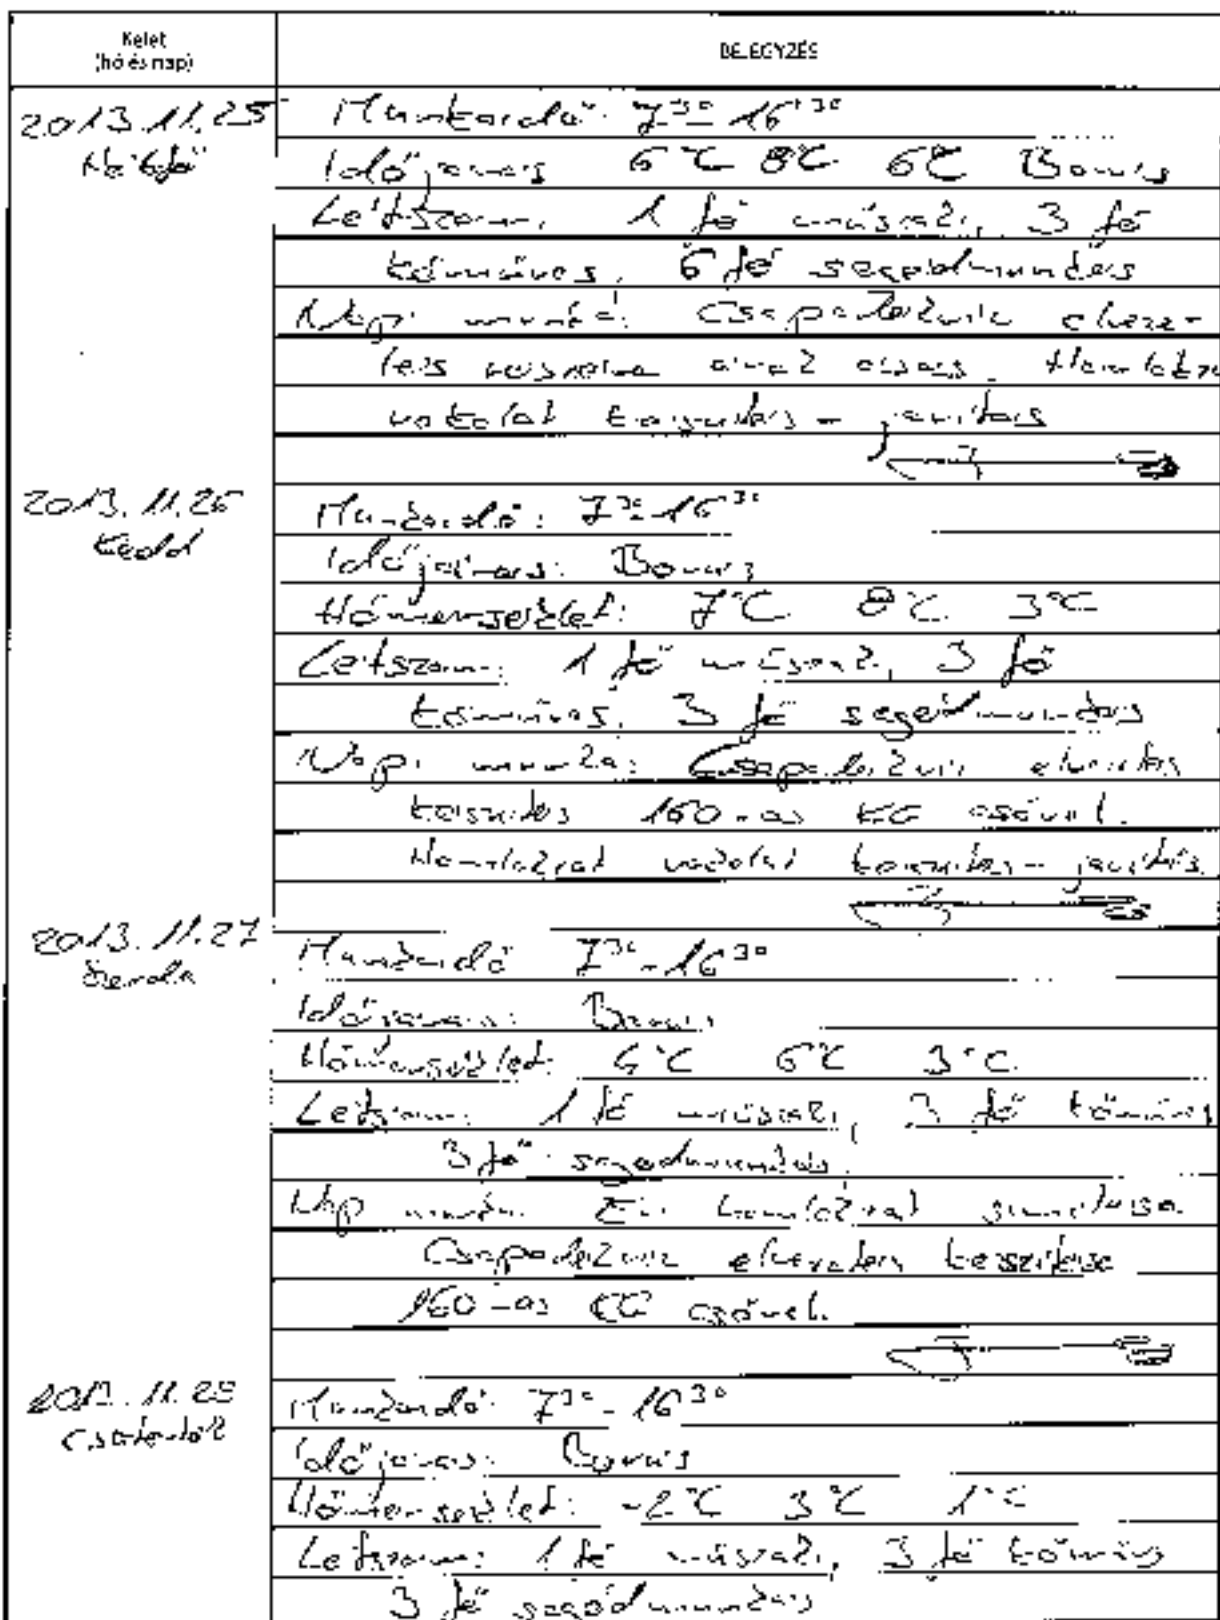 Kelet
(hó és nap)
BEJEGYZÉS
2013.11.25
Hétfő
Munkaidő: 7³⁰ 16³⁰
Időjárás 6°C 8°C 6°C Borús
Létszám: 1 fő műszaki, 3 fő
kőműves, 6 fő segédmunkás
Napi munka: Csapadékvíz elveze-
tés részére árok ásás. Homlokza
vakolat készítés - javítás
2013.11.26
Kedd
Munkaidő: 7³⁰-16³⁰
Időjárás: Borús
Hőmérséklet: 7°C 8°C 3°C
Létszám: 1 fő műszaki, 3 fő
kőműves, 3 fő segédmunkás
Napi munka: Csapadékvíz elvezetés
készítés 160-as KG csővel.
Homlokzat vakolat készítés - javítás
2013.11.27
Szerda
Munkaidő 7³⁰-16³⁰
Időjárás: Borús
Hőmérséklet: 6°C 6°C 3°C
Létszám: 1 fő műszaki, 3 fő kőműves
3 fő segédmunkás.
Nap munka homlokzat
Csapadékvíz elvezetés készítése
160-as KG csővel.
2013.11.28
Csütörtök
Munkaidő: 7³⁰-16³⁰
Időjárás: Borús
Hőmérséklet: -2°C 3°C 1°C
Létszám: 1 fő műszaki, 3 fő kőműves
3 fő segédmunkás